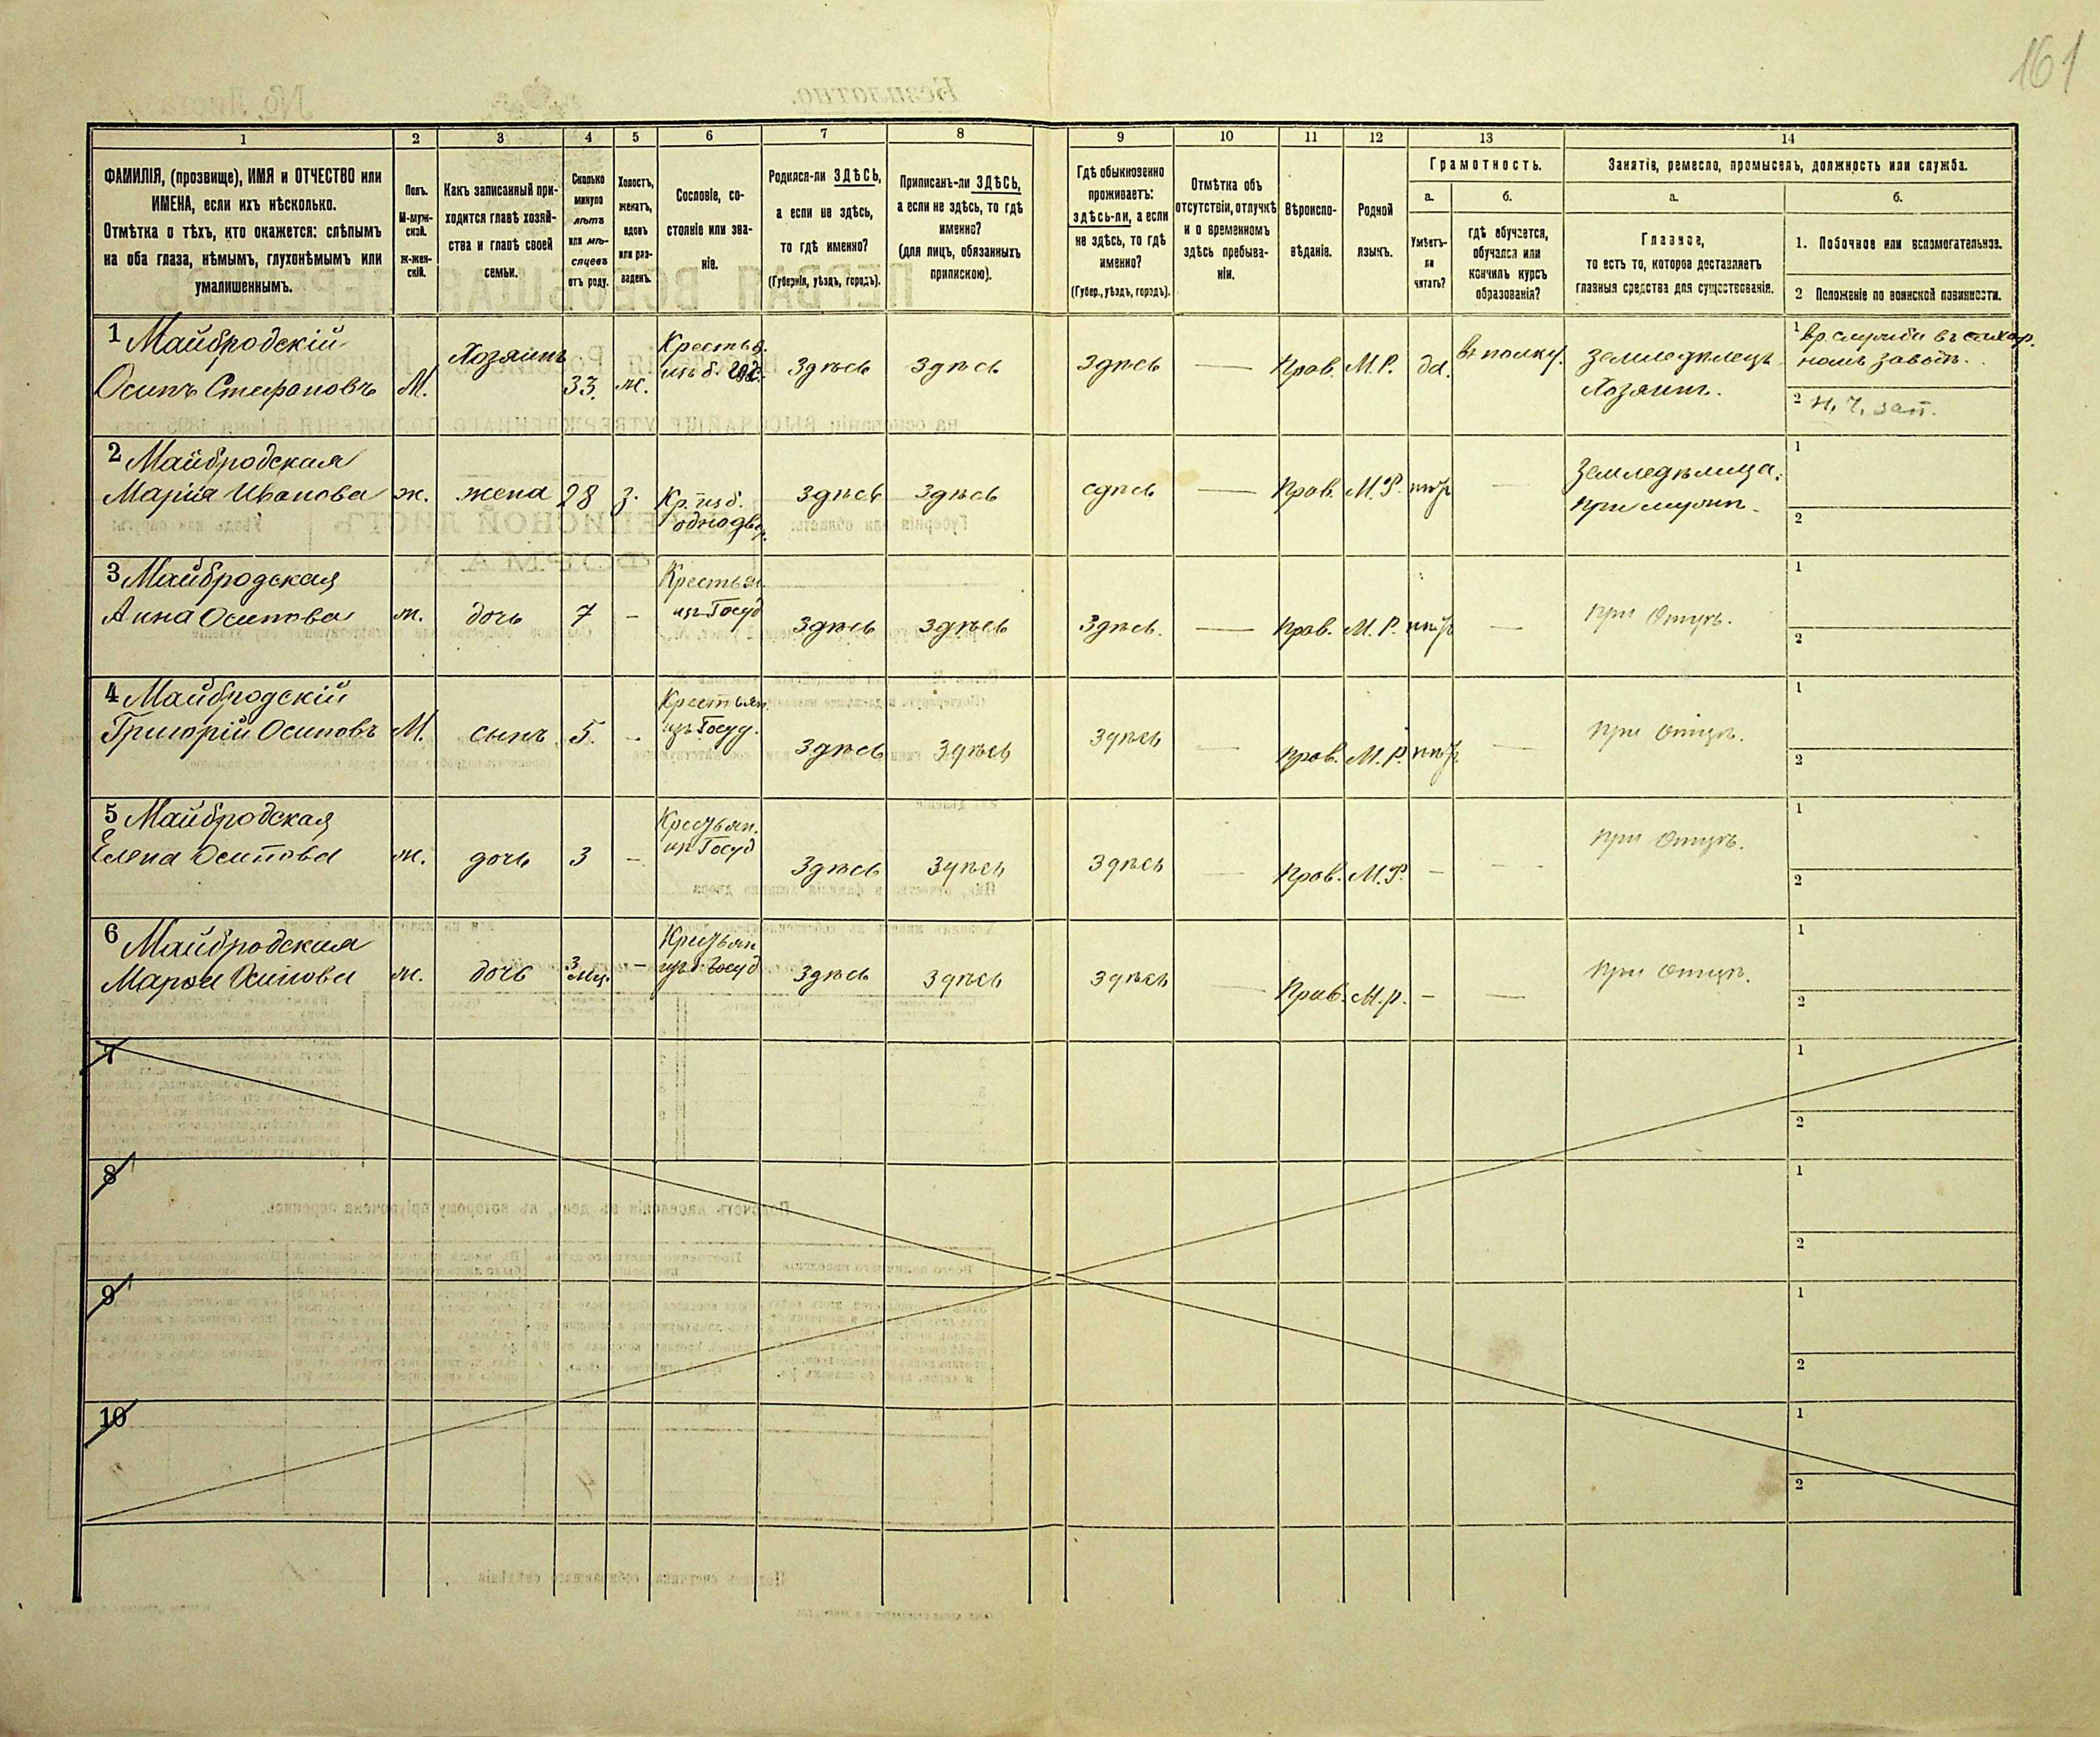 161
1
2
3
4
5
6
7
8
9
10
11
12
13
14
ФАМИЛІЯ, (прозвище), ИМЯ и ОТЧЕСТВО или
ИМЕНА, если ихъ нѣсколько.
Отмѣтка о тѣхъ, кто окажется: слѣпымъ
на оба глаза, нѣмымъ, глухонѣмымъ или
умалишеннымъ.
Полъ.
М-муж-
ской.
Ж-жен-
скій.
Какъ записанный при-
ходится главѣ хозяй-
ства и главѣ своей
семьи.
Сколько
минуло
лѣтъ
или мѣ-
сяцевъ
отъ роду.
Холостъ,
женатъ,
вдовъ
или раз-
веденъ.
Сословіе, со-
стояніе или зва-
ніе.
Родился-ли ЗДѢСЬ,
а если не здѣсь,
то гдѣ именно?
(Губернія, уѣздъ, городъ).
Приписанъ-ли ЗДѢСЬ,
а если не здѣсь, то гдѣ
именно?
(для лицъ, обязанныхъ
припискою).
Гдѣ обыкновенно
проживаетъ:
здѣсь-ли, а если
не здѣсь, то гдѣ
именно?
(Губер., уѣздъ, городъ).
Отмѣтка объ
отсутствіи, отлучкѣ
и о временномъ
здѣсь пребыва-
ніи.
Вѣроиспо-
вѣданіе.
Родной
языкъ.
Грамотность.
а.
Умѣетъ-
ли
читать?
б.
гдѣ обучается,
обучался или
кончилъ курсъ
образованія?
Занятіе, ремесло, промыселъ, должность или служба.
а.
Главное,
то есть то, которое доставляетъ
главныя средства для существованія.
б.
1. Побочное или вспомогательное.
2 Положеніе по воинской повинности.
1 Майбродскій
Осипъ Стефановъ М. Хозяинъ 33. ж. Крестья. изъ б. Здѣсь Здѣсь Здѣсь — Прав. М.Р. да. въ полку. Земледѣлецъ
Хозяинъ.
1 Вр. служба въ сахар.
номъ заводѣ.
2 Н. Ч. зап.
2 Майбродская
Марія Иванова ж. жена 28 з. Кр. из б.
однодвор. Здѣсь Здѣсь сдѣсь — Прав. М.Р. нѣтъ — Земледѣлица.
при мужѣ.
1
2
3 Майбродская
Анна Осипова ж. дочь 7 - Крестьян.
изъ Госуд Здѣсь Здѣсь Здѣсь. — Прав. М.Р. нѣтъ — при Отцѣ.
1
2
4 Майбродскій
Григорій Осиповъ М. сынъ 5. - Крестьян.
изъ Госуд. Здѣсь Здѣсь Здѣсь — Прав. М.Р. нѣтъ — при Отцѣ.
1
2
5 Майбродская
Елена Осипова ж. дочь 3 - Крестьян.
изъ Госуд Здѣсь Здѣсь Здѣсь — Прав. М.Р. - — при Отцѣ.
1
2
6 Майбродская
Осипова ж. дочь 3 мѣс. - Крестьян
изъ б. Госуд. Здѣсь Здѣсь Здѣсь — Прав. М.р. - — при Отцѣ.
1
2
7
1
2
8
1
2
9
1
2
10
1
2